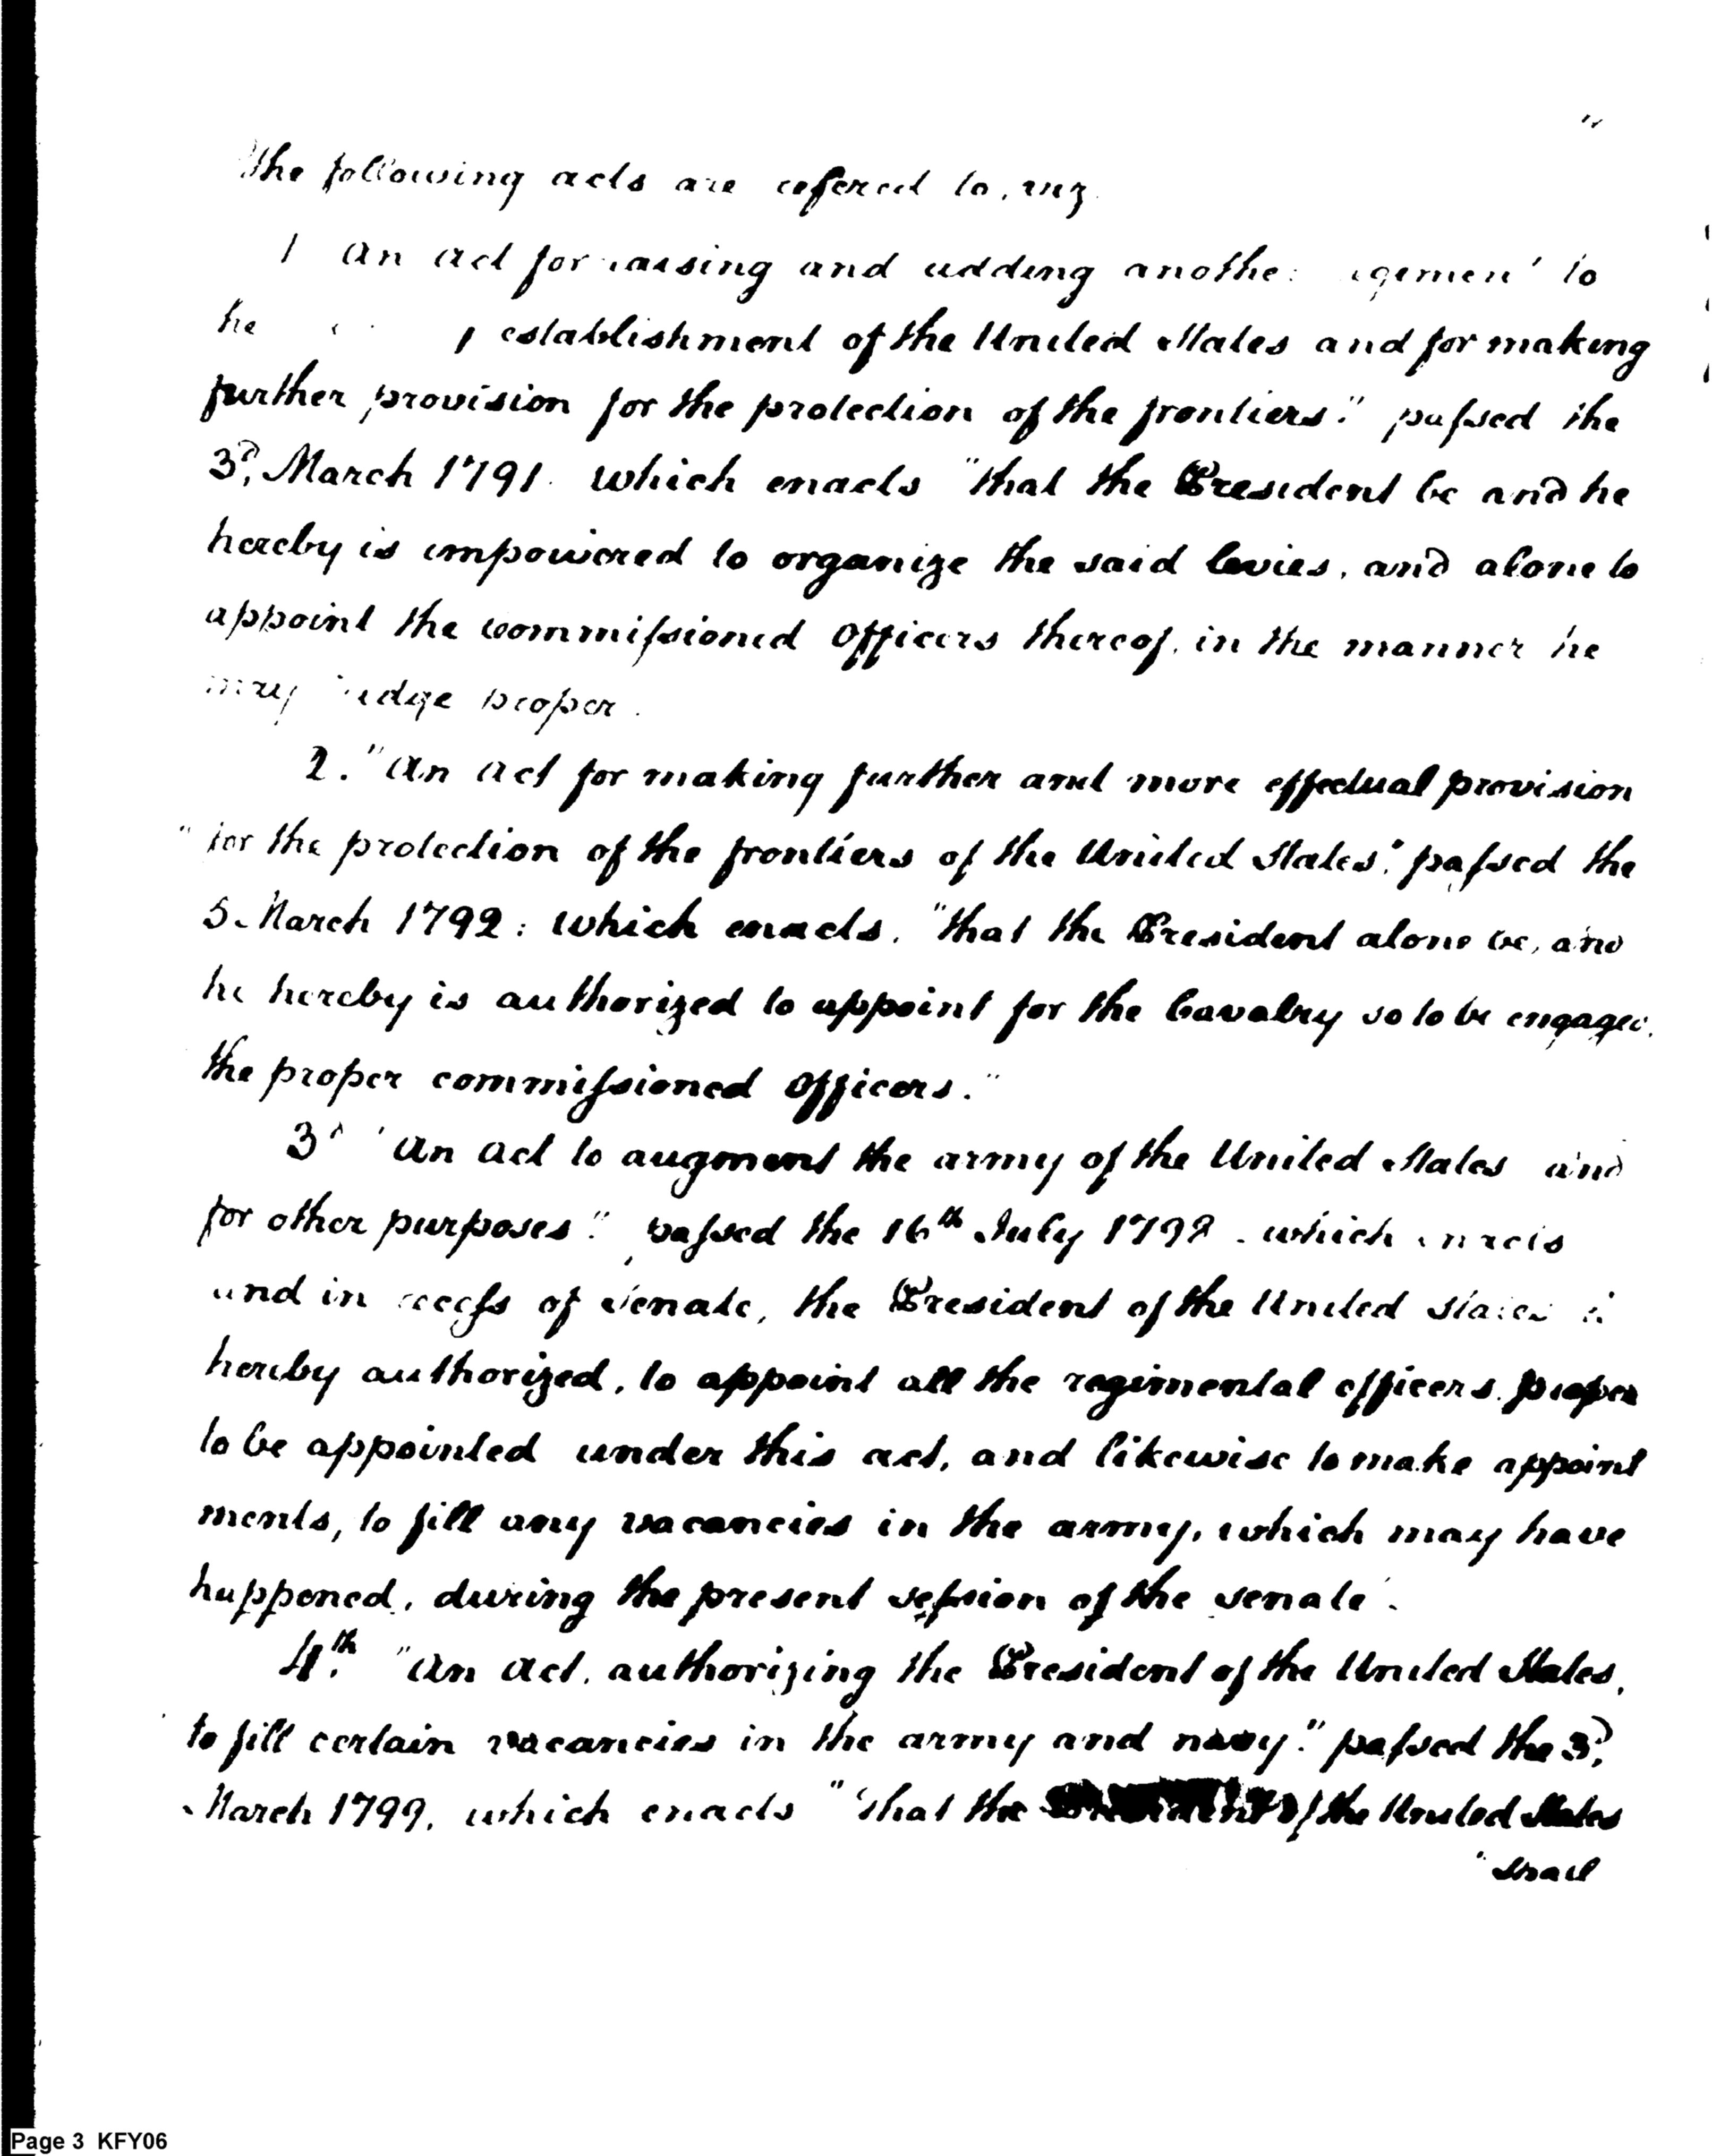 "
The following acts are refered to, viz.
1 An act for raising and adding another to
establishment of the United States and for making
further provision for the protection of the frontiers." passed the
3d. March 1791. which enacts "that the President be and he
hereby is impowered to organize the said levies, and alone to
appoint the commissioned officers thereof, in the manner he
may judge proper.
2. "An act for making further and more effectual provision
" for the protection of the frontiers of the United States". passed the
5. March 1792: which enacts, "that the President alone be, and
he hereby is authorized to appoint for the Cavalry so to be engaged,
the proper commissioned officers."
3d "An act to augment the army of the United States and
for other purposes." passed the 16th July 1798. which enacts
and in recess of Senate, the President of the United States is
hereby authorized, to appoint all the regimental officers proper
to be appointed under this act, and likewise to make appoint
ments, to fill any vacancies in the army, which may have
happened, during the present session of the senate".
4th. "An act, authorizing the President of the United States,
to fill certain vacancies in the army and navy." passed the 3d.
March 1799, which enacts "That the President of the United States
"shall
Page 3 KFY06